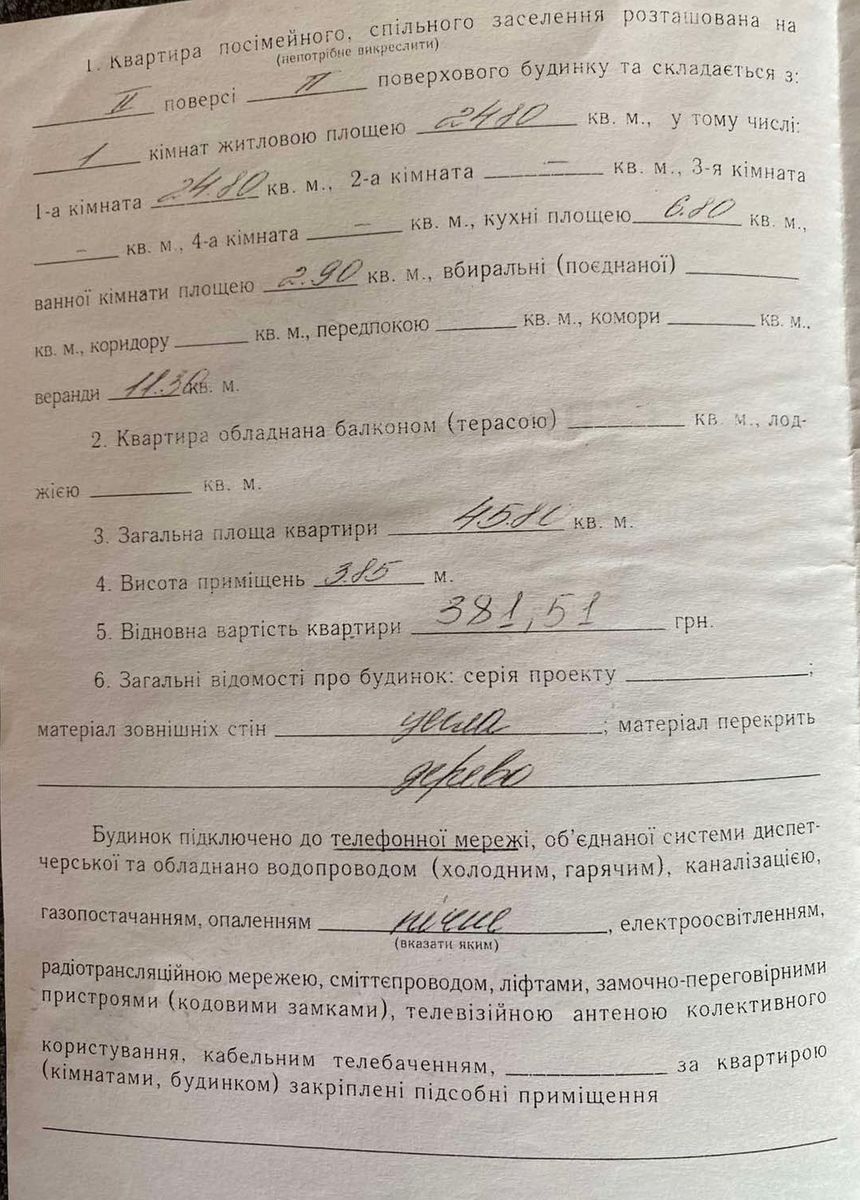 1. Квартира посімейного, спільного заселення розташована на
(непотрібне викреслити)
II поверсі II поверхового будинку та складається з:
1 кімнат житловою площею 24.80 кв. м., у тому числі:
1-а кімната 24.80 кв. м., 2-а кімната — кв. м., 3-я кімната
– кв. м., 4-а кімната – кв. м., кухні площею 6.80 кв. м.,
ванної кімнати площею 2.90 кв. м., вбиральні (поєднаної)
кв. м., коридору кв. м., передпокою кв. м., комори кв. м.,
веранди 11.30 кв. м.
2. Квартира обладнана балконом (терасою) кв. м., лод-
жією кв. м.
3. Загальна площа квартири 45.80 кв. м.
4. Висота приміщень 3.85 м.
5. Відновна вартість квартири 381,51 грн.
6. Загальні відомості про будинок: серія проекту ;
матеріал зовнішніх стін цегла ; матеріал перекрить
дерево
Будинок підключено до телефонної мережі, об'єднаної системи диспет-
черської та обладнано водопроводом (холодним, гарячим), каналізацією,
газопостачанням, опаленням пічне , електроосвітленням,
(вказати яким)
радіотрансляційною мережею, сміттєпроводом, ліфтами, замочно-переговірними
пристроями (кодовими замками), телевізійною антеною колективного
користування, кабельним телебаченням, за квартирою
(кімнатами, будинком) закріплені підсобні приміщення